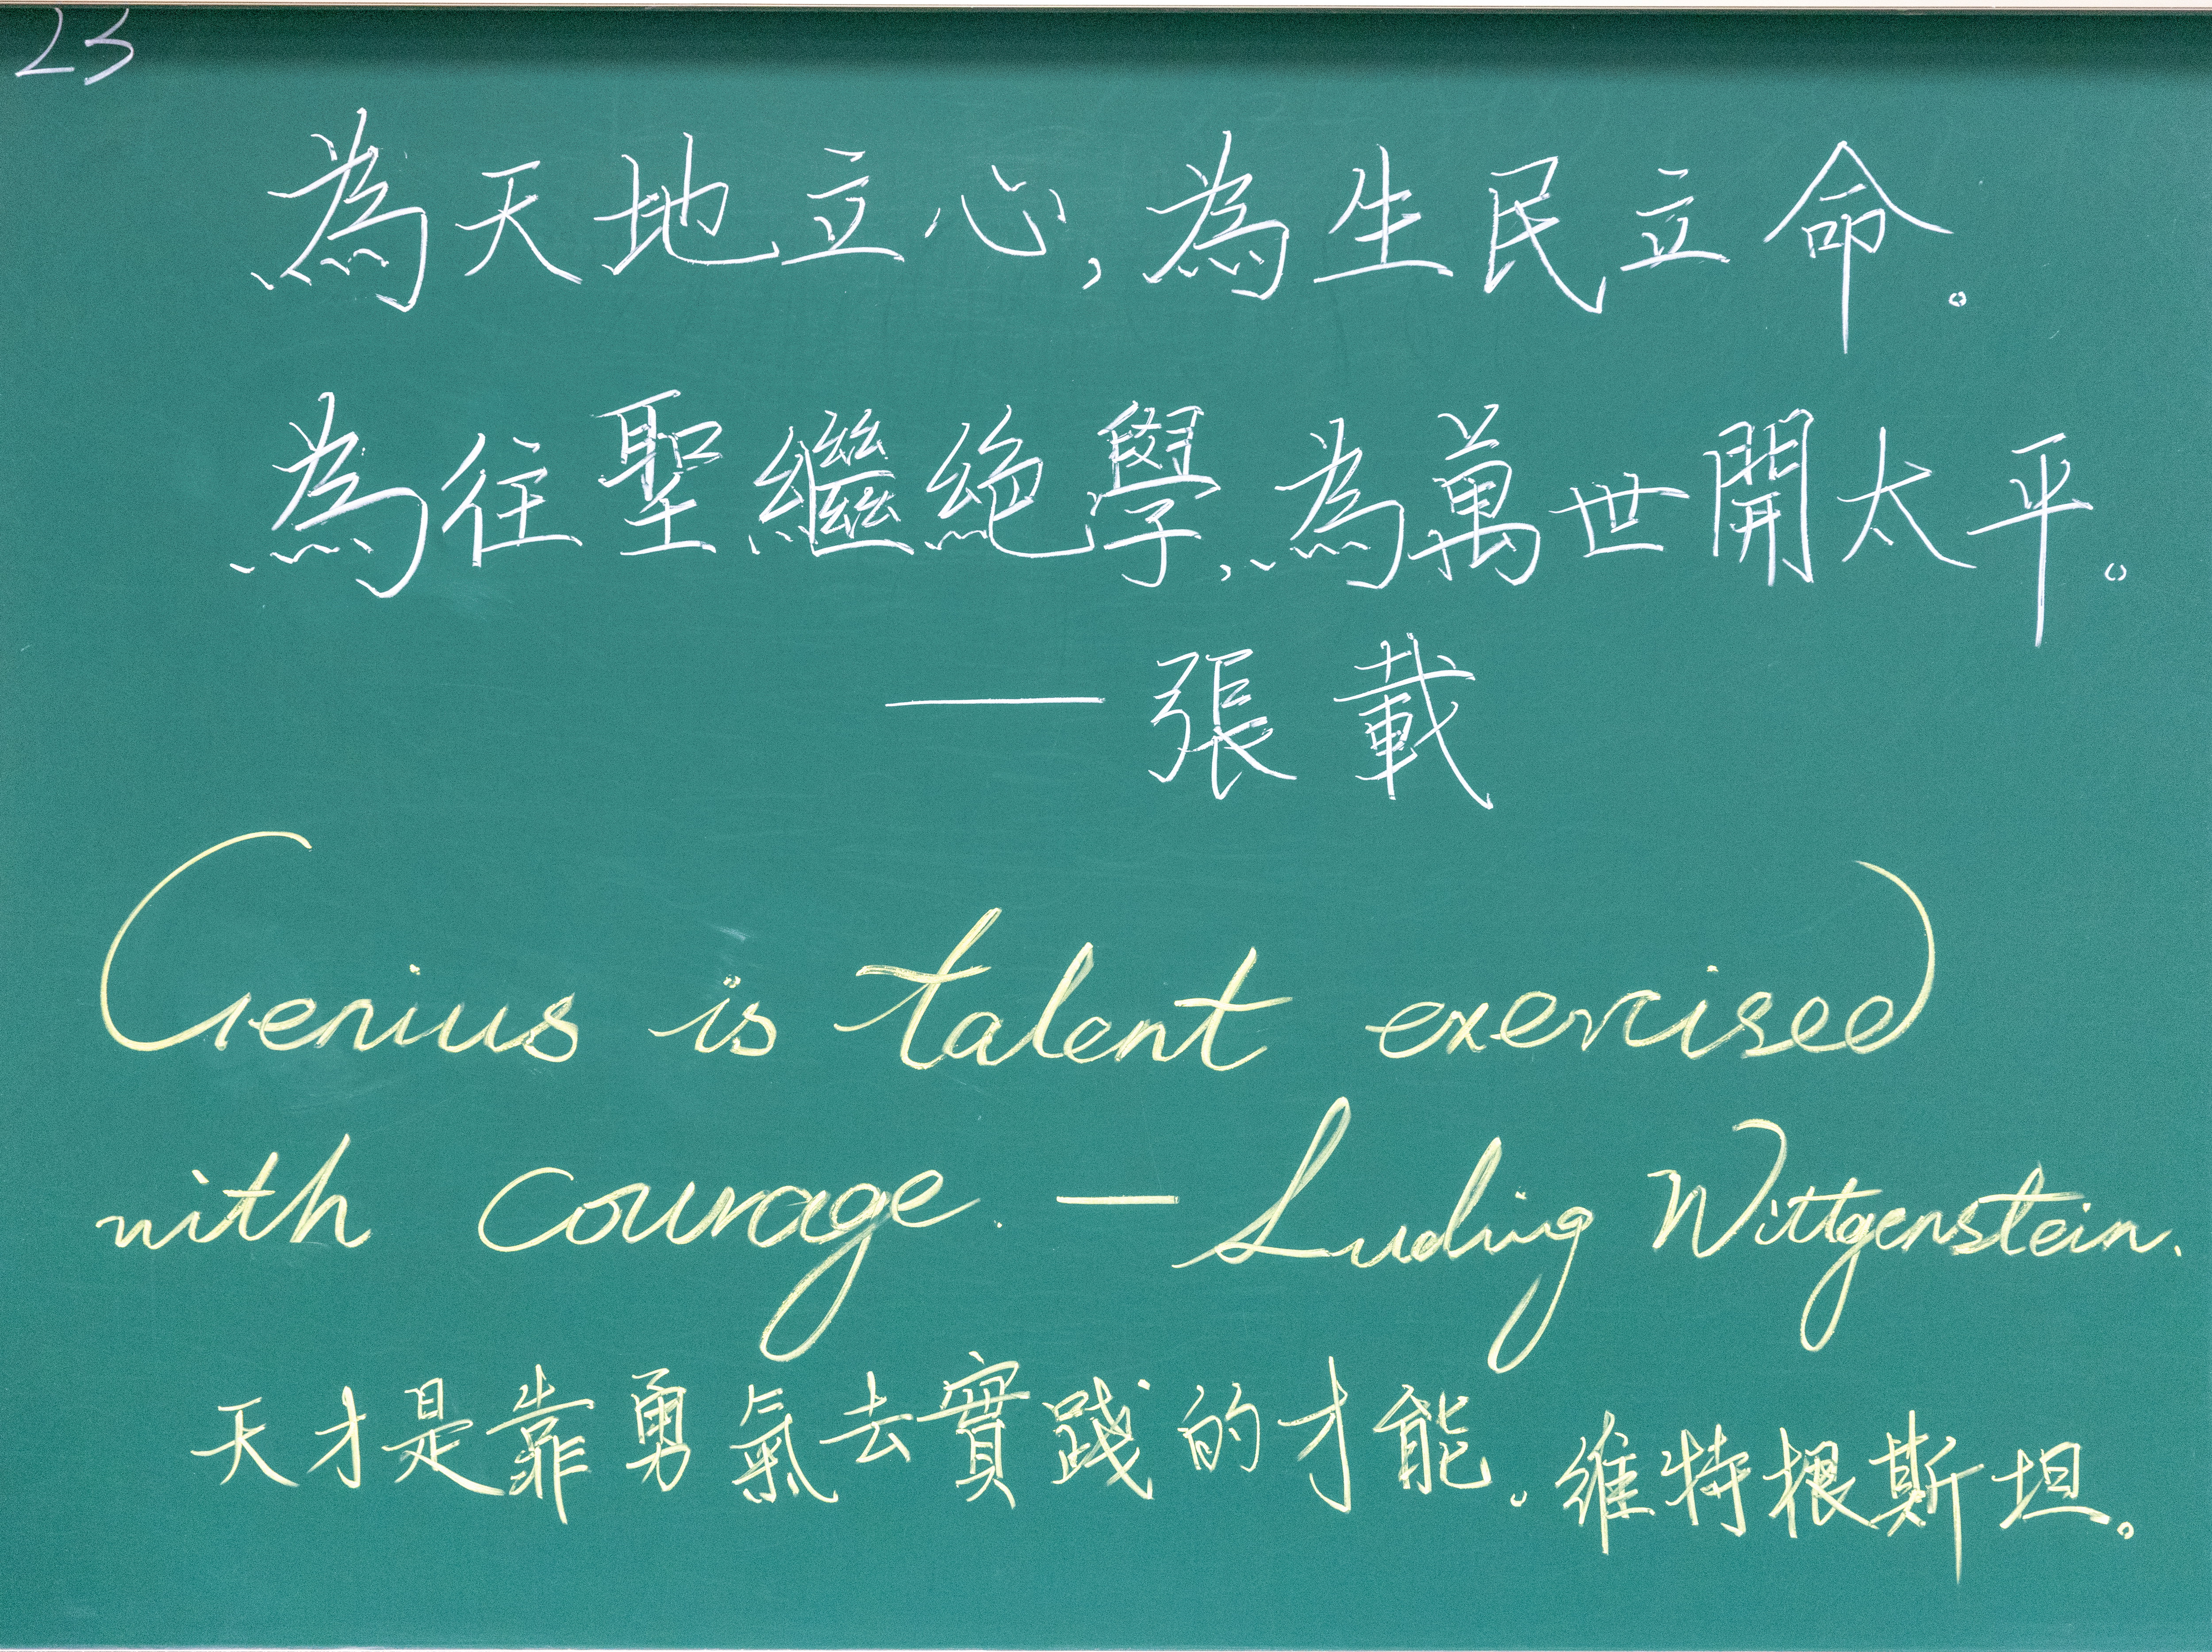 23
為天地立心,為生民立命。
為往聖繼絕學,為萬世開太平。
——張載
Genius is talent exercised
with courage. — Ludwig Wittgenstein.
天才是靠勇氣去實踐的才能。維特根斯坦。